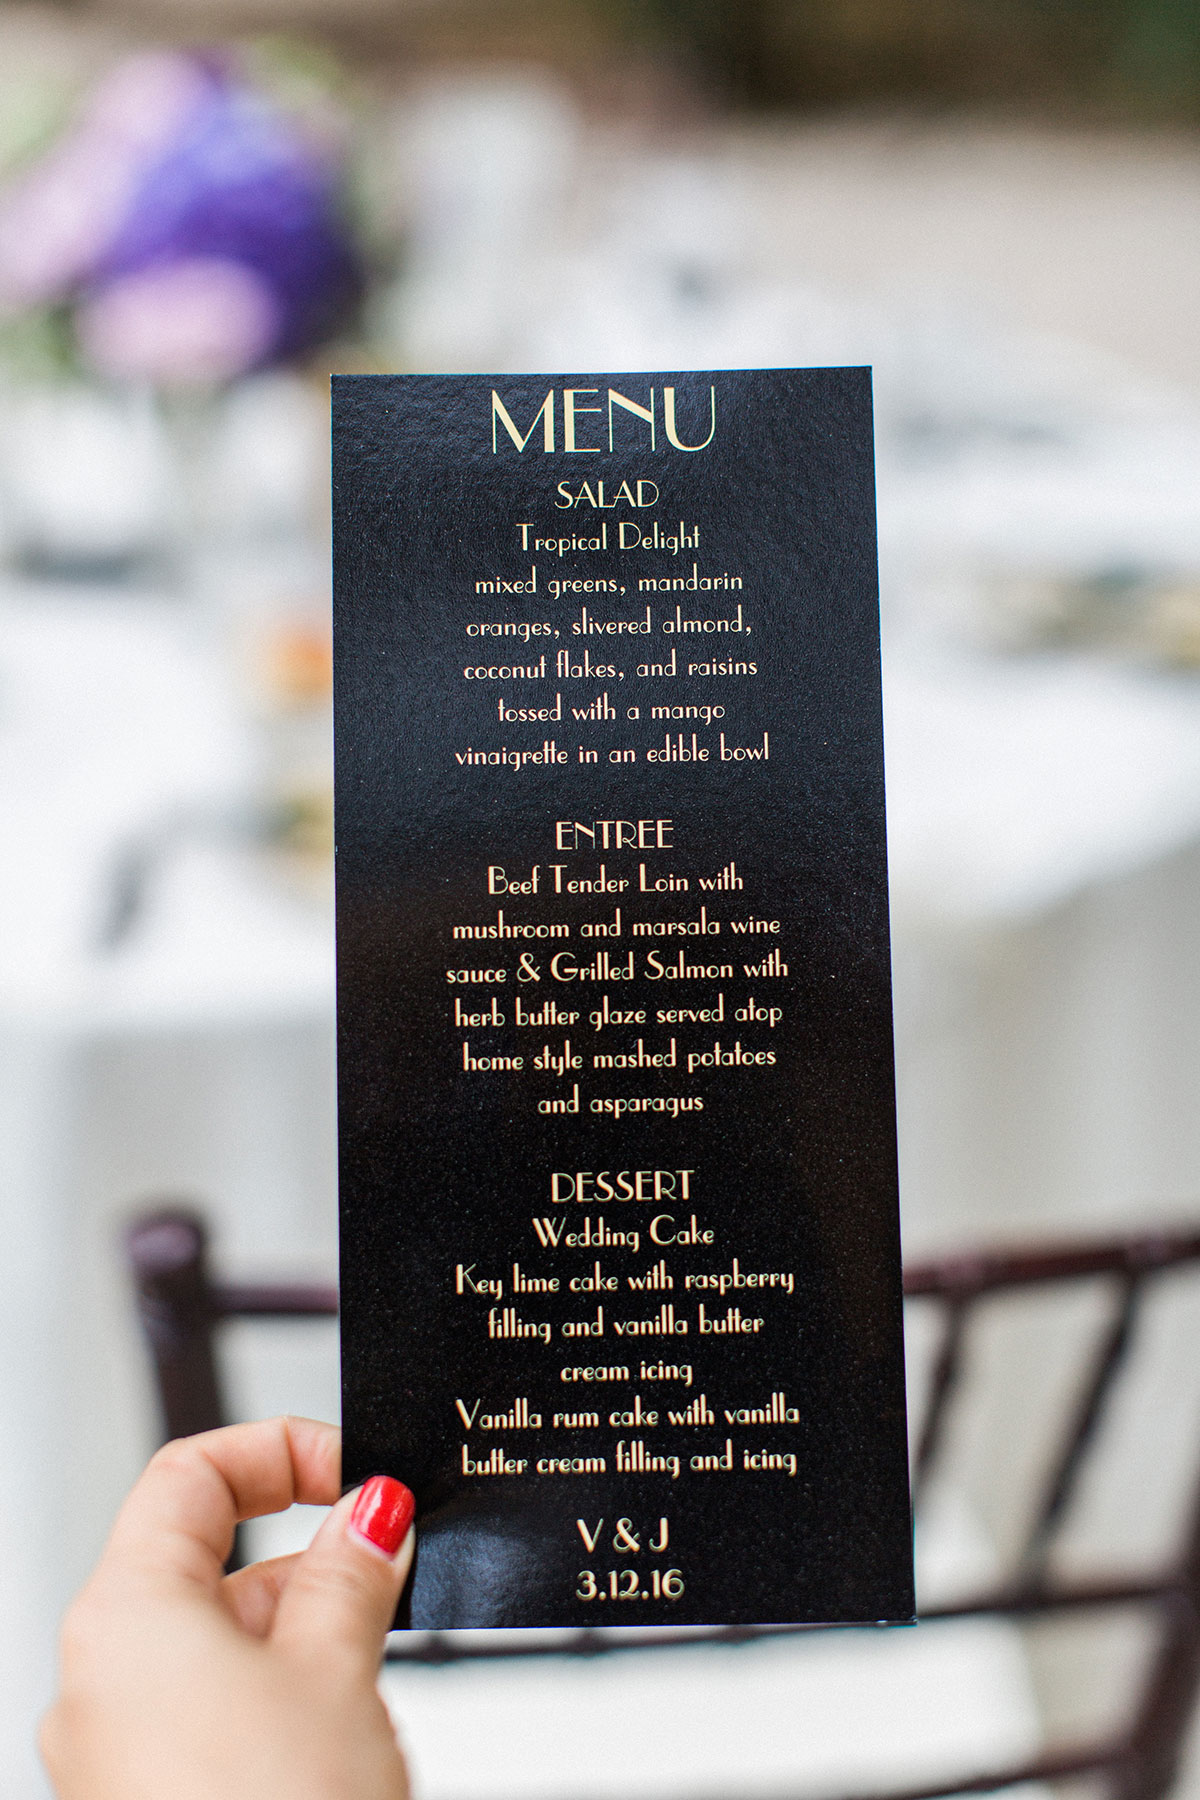 MENU
SALAD
Tropical Delight
mixed greens, mandarin
oranges, slivered almond,
coconut flakes, and raisins
tossed with a mango
vinaigrette in an edible bowl
ENTREE
Beef Tender Loin with
mushroom and marsala wine
sauce & Grilled Salmon with
herb butter glaze served atop
home style mashed potatoes
and asparagus
DESSERT
Wedding Cake
Key lime cake with raspberry
filling and vanilla butter
cream icing
Vanilla rum cake with vanilla
butter cream filling and icing
V & J
3.12.16